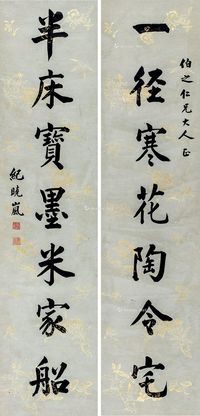 伯之仁兄大人正
一径寒花陶令宅
半床寶墨米家船
紀曉嵐